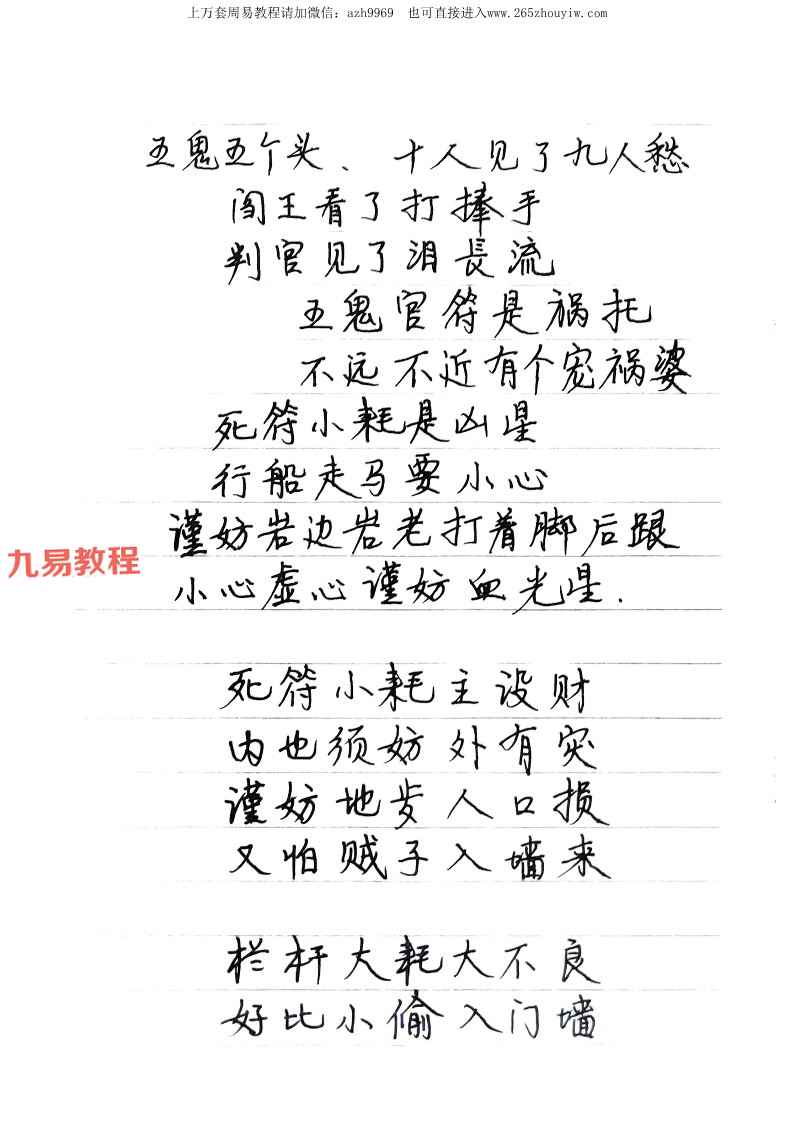 上万套周易教程请加微信：azh9969 也可直接进入www.265zhouyiw.com
五鬼五个头、十人见了九人愁
阎王看了打捧手
判官见了泪長流
五鬼官符是祸托
不远不近有个宠祸婆
死符小耗是凶星
行船走马要小心
谨妨岩边岩老打着脚后跟
九易教程
小心虚心谨妨血光星.
死符小耗主设财
内也须妨外有灾
谨妨地步人口损
又怕贼子入墙来
栏杆大耗大不良
好比小偷入门墙